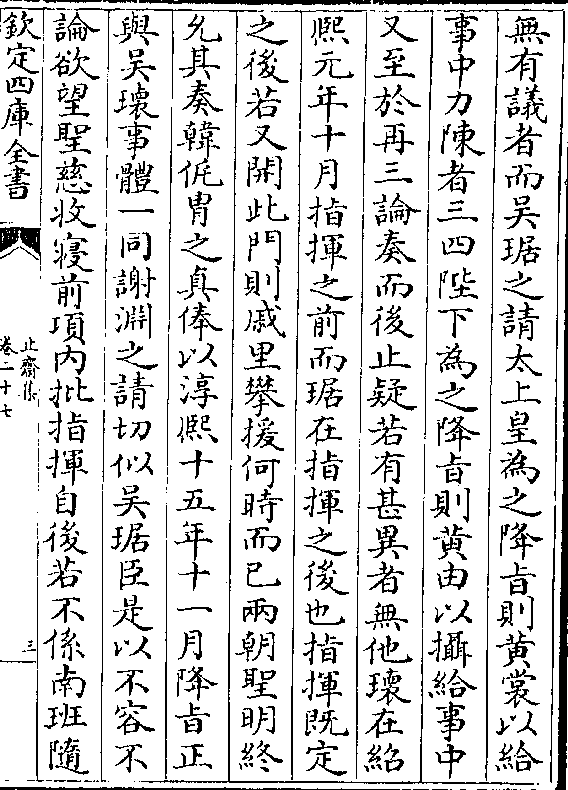 無有議者而吳琚之請太上皇為之降㫖則黃裳以給
事中力陳者三四陛下為之降㫖則黄由以攝給事中
又至於再三論奏而後止疑若有甚異者無他瓌在紹
熙元年十月指揮之前而琚在指揮之後也指揮既定
之後若又開此門則戚里攀援何時而已兩朝聖明終
允其奏韓侂胄之真俸以淳熙十五年十一月降㫖正
與吳瓌事體一同謝淵之請切似吳琚臣是以不容不
論欲望聖慈收寢前項内批指揮自後若不係南班隨
欽定四庫全書
止齋集
卷二十七
三